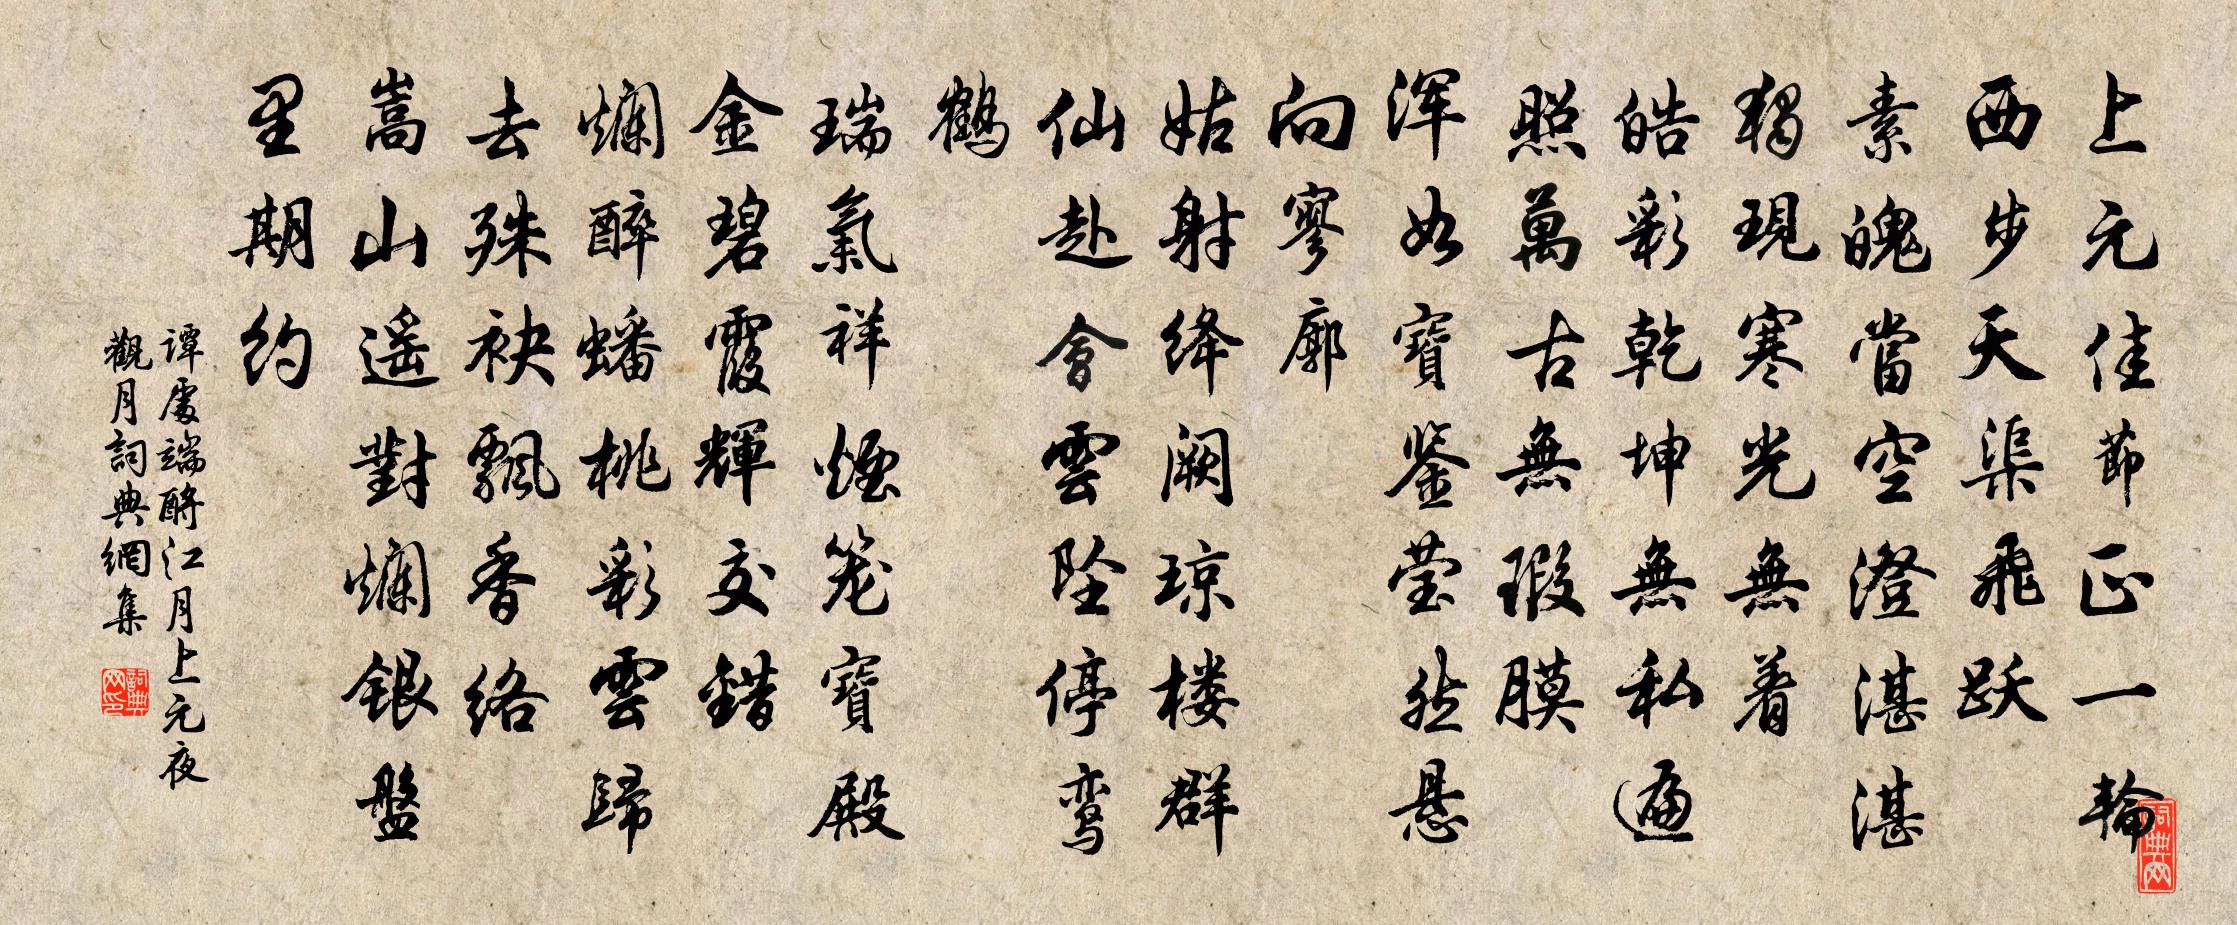 上元佳節正一輪
西步天渠飛跃
素魄當空澄湛湛
獨現寒光無着
皓彩乾坤無私遍
照萬古無瑕膜
渾如寶鉴莹然懸
向寥廓
姑射绛阙琼楼群
仙赴會雲坠停鸾
鶴
瑞氣祥煙笼寶殿
金碧霞輝交錯
爛醉蟠桃彩雲歸
去殊袂飄香络
嵩山遥對爛銀盤
里期约
譚處端酹江月上元夜
觀月詞典網集
詞典网印
詞典网